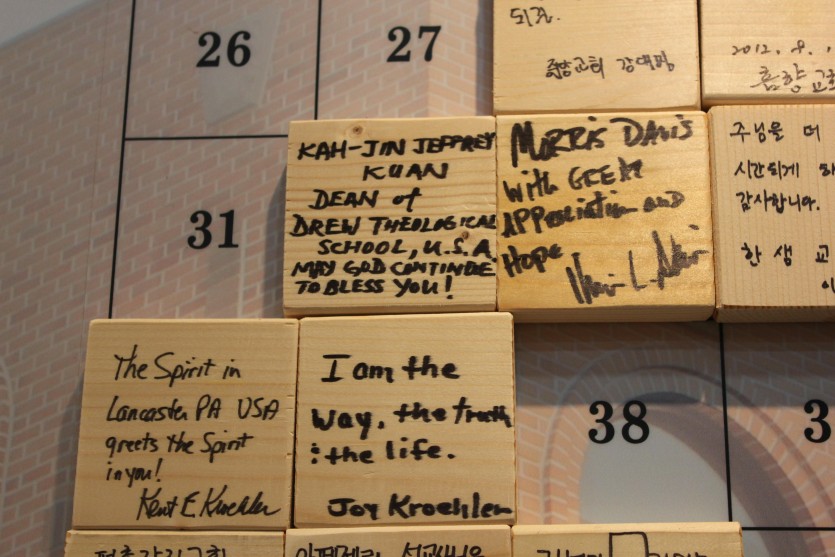 26
27
되죠.
중앙교회
2012. 8. 1
31
KAH-JIN JEFFREY
KUAN
DEAN of
DREW THEOLOGICAL
SCHOOL, U.S.A.
MAY GOD CONTINUE
TO BLESS YOU!
MORRIS DAVIS
With GREAT
APPreciation and
Hope
주님을 더
시간되게
감사합니다.
한 생 교
The Spirit in
Lancaster PA USA
greets the Spirit
in you!
Kent E. Kroehler
I am the
way, the truth
: the life.
Joy Kroehler
38
3